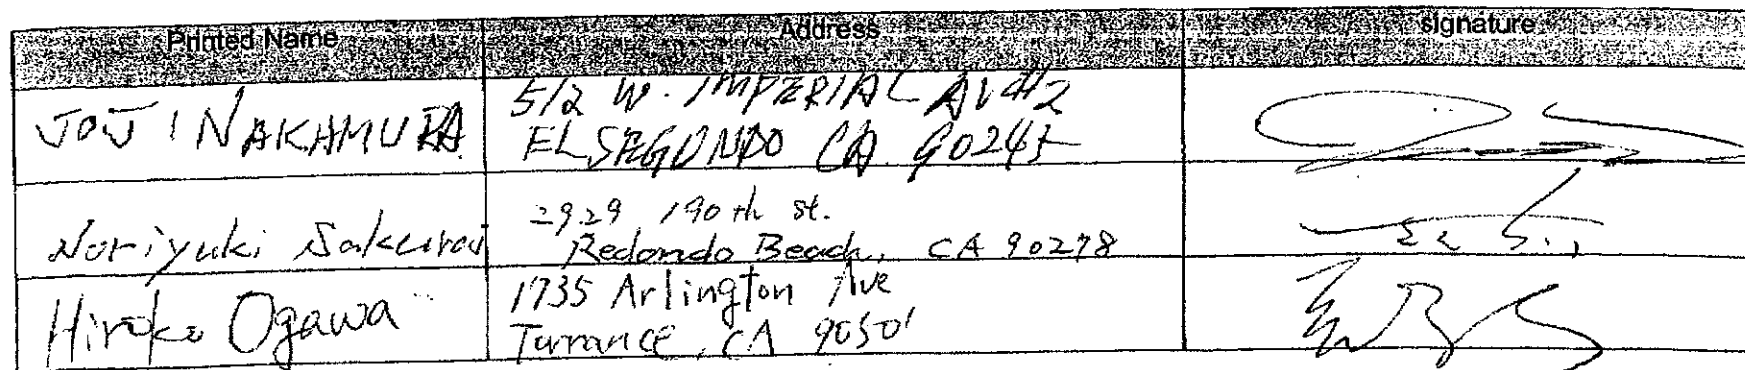 Printed Name Address signature
JOJI NAKAMURA
512 W. IMPERIAL AV #2
EL SEGUNDO CA 90245
Noriyuki Sakurai
2929 190th st.
Redondo Beach, CA 90278
Hiroko Ogawa
1735 Arlington Ave
Torrance, CA 90501